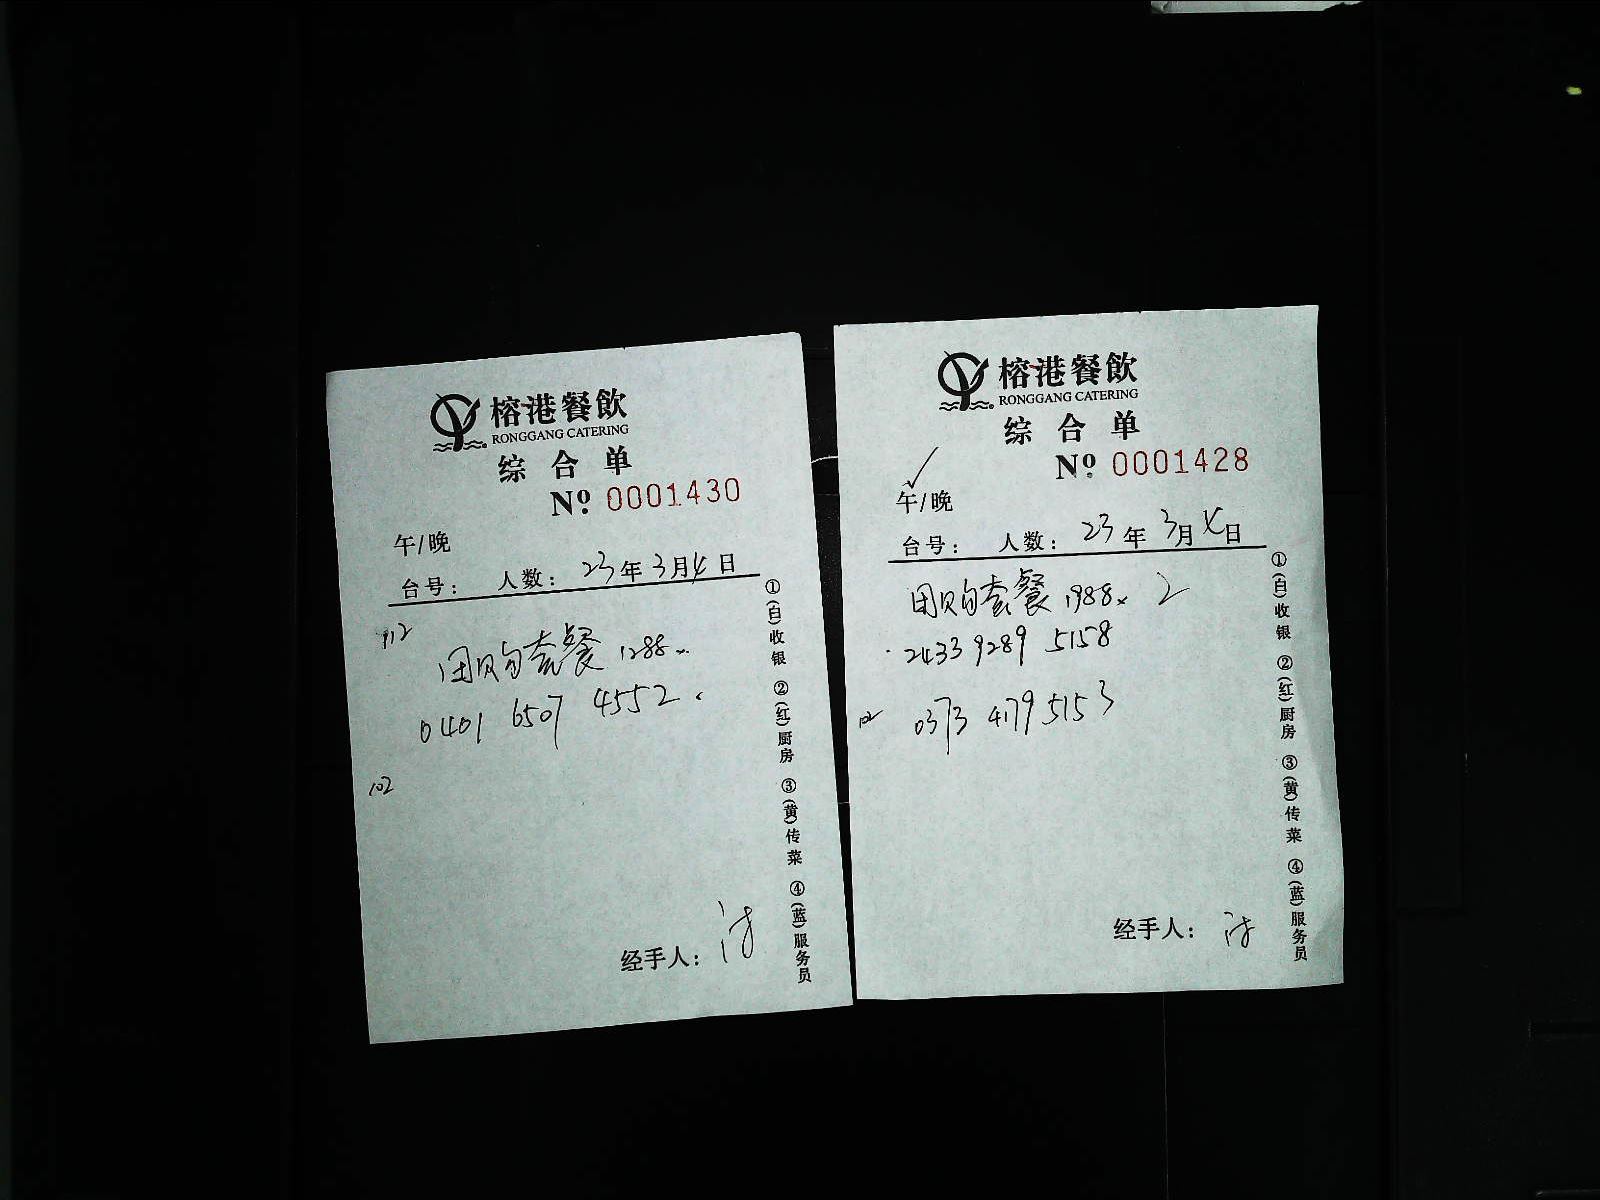 榕港餐飲
RONGGANG CATERING
综合单
Nº 0001430
午/晚
台号： 人数： 23年3月4日
112
团购套餐 1288
0401 6507 4552
102
经手人：
①(白)收银 ②(红)厨房 ③(黄)传菜 ④(蓝)服务员
榕港餐飲
RONGGANG CATERING
综合单
Nº 0001428
午/晚
台号： 人数： 23年3月4日
团购套餐 1988x 2
2433 9289 5158
102 0373 4179 5153
经手人：
①(白)收银 ②(红)厨房 ③(黄)传菜 ④(蓝)服务员